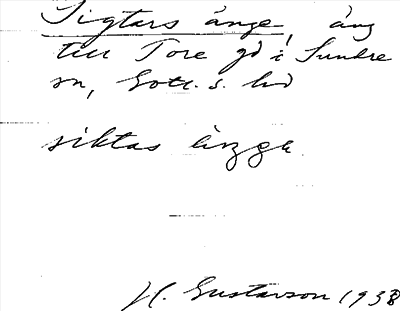 Sigtars änge, äng
till Tore gd i Sundre
sn, Gotl. s. hd
siktas ängga
H. Gustavson 1938